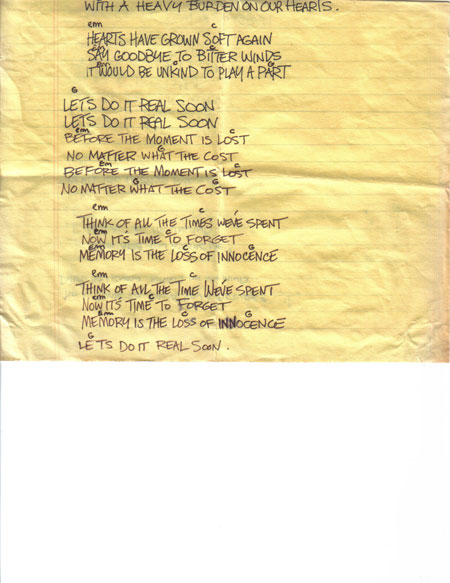 WITH A HEAVY BURDEN ON OUR HEARTS.
em C
HEARTS HAVE GROWN SOFT AGAIN
em C
SAY GOODBYE TO BITTER WINDS
em C G
IT WOULD BE UNKIND TO PLAY A PART
G
LETS DO IT REAL SOON
LETS DO IT REAL SOON
em C
BEFORE THE MOMENT IS LOST
G
NO MATTER WHAT THE COST
em C
BEFORE THE MOMENT IS LOST
G G
NO MATTER WHAT THE COST
em C
THINK OF ALL THE TIMES WE'VE SPENT
em C
NOW IT'S TIME TO FORGET
em C G
MEMORY IS THE LOSS OF INNOCENCE
em C
THINK OF ALL THE TIME WE'VE SPENT
em C
NOW IT'S TIME TO FORGET
em C G
MEMORY IS THE LOSS OF INNOCENCE
G
LETS DO IT REAL SOON.